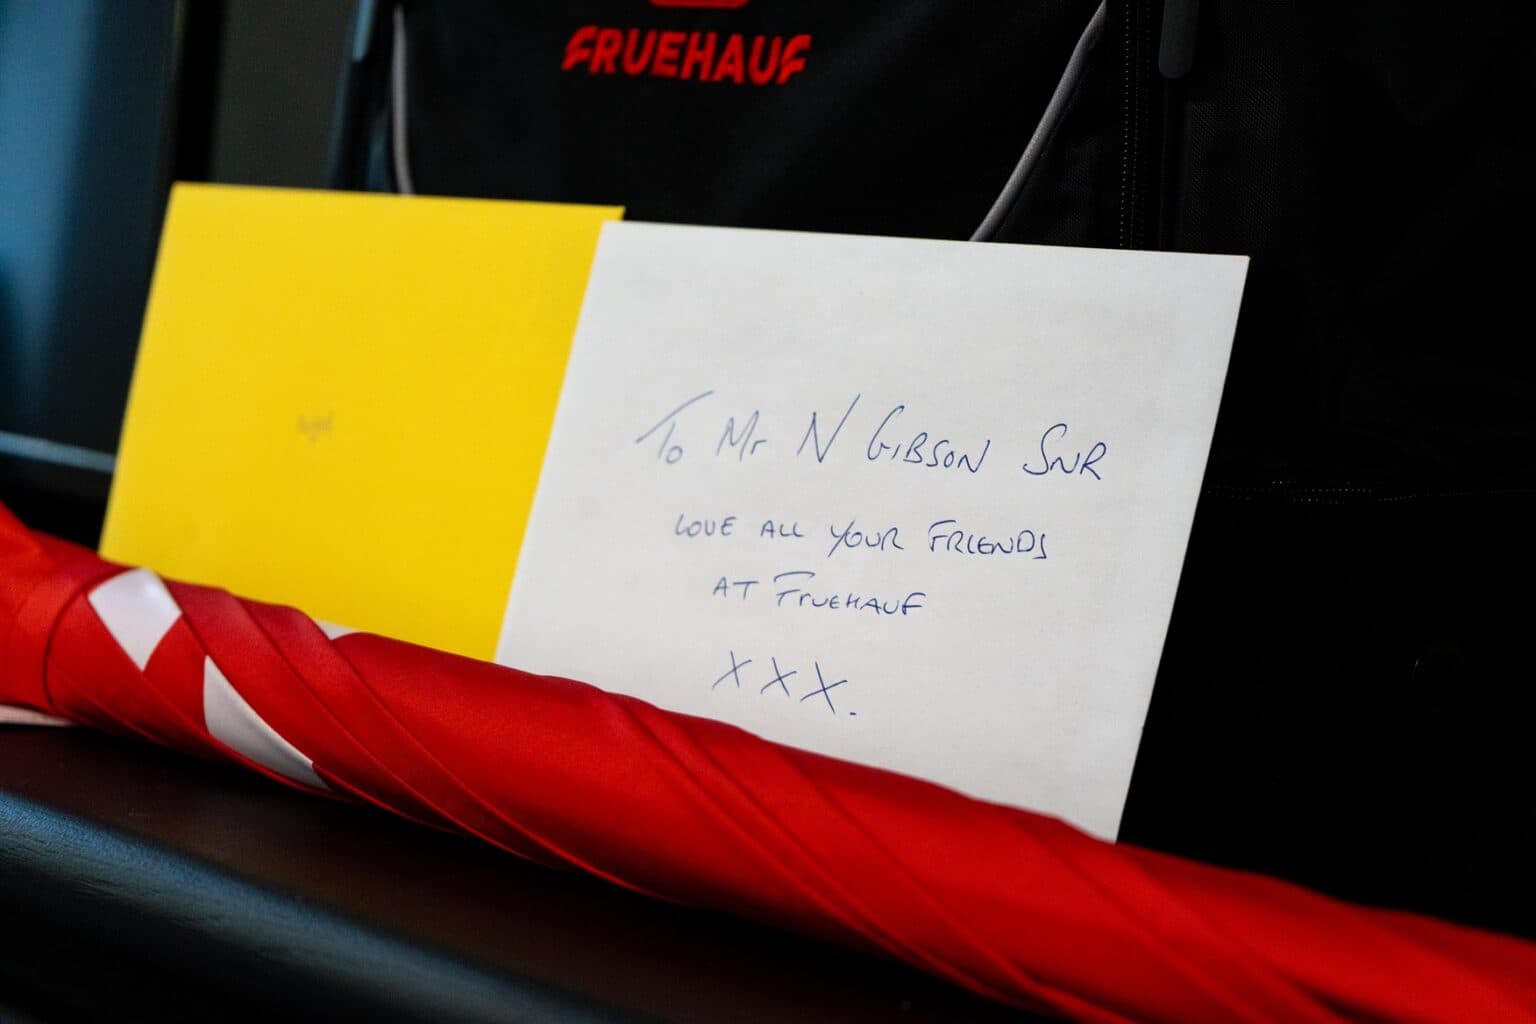 FRUEHAUF
To Mr N GIBSON SNR
LOVE ALL YOUR FRIENDS
AT FRUEHAUF
XXX.